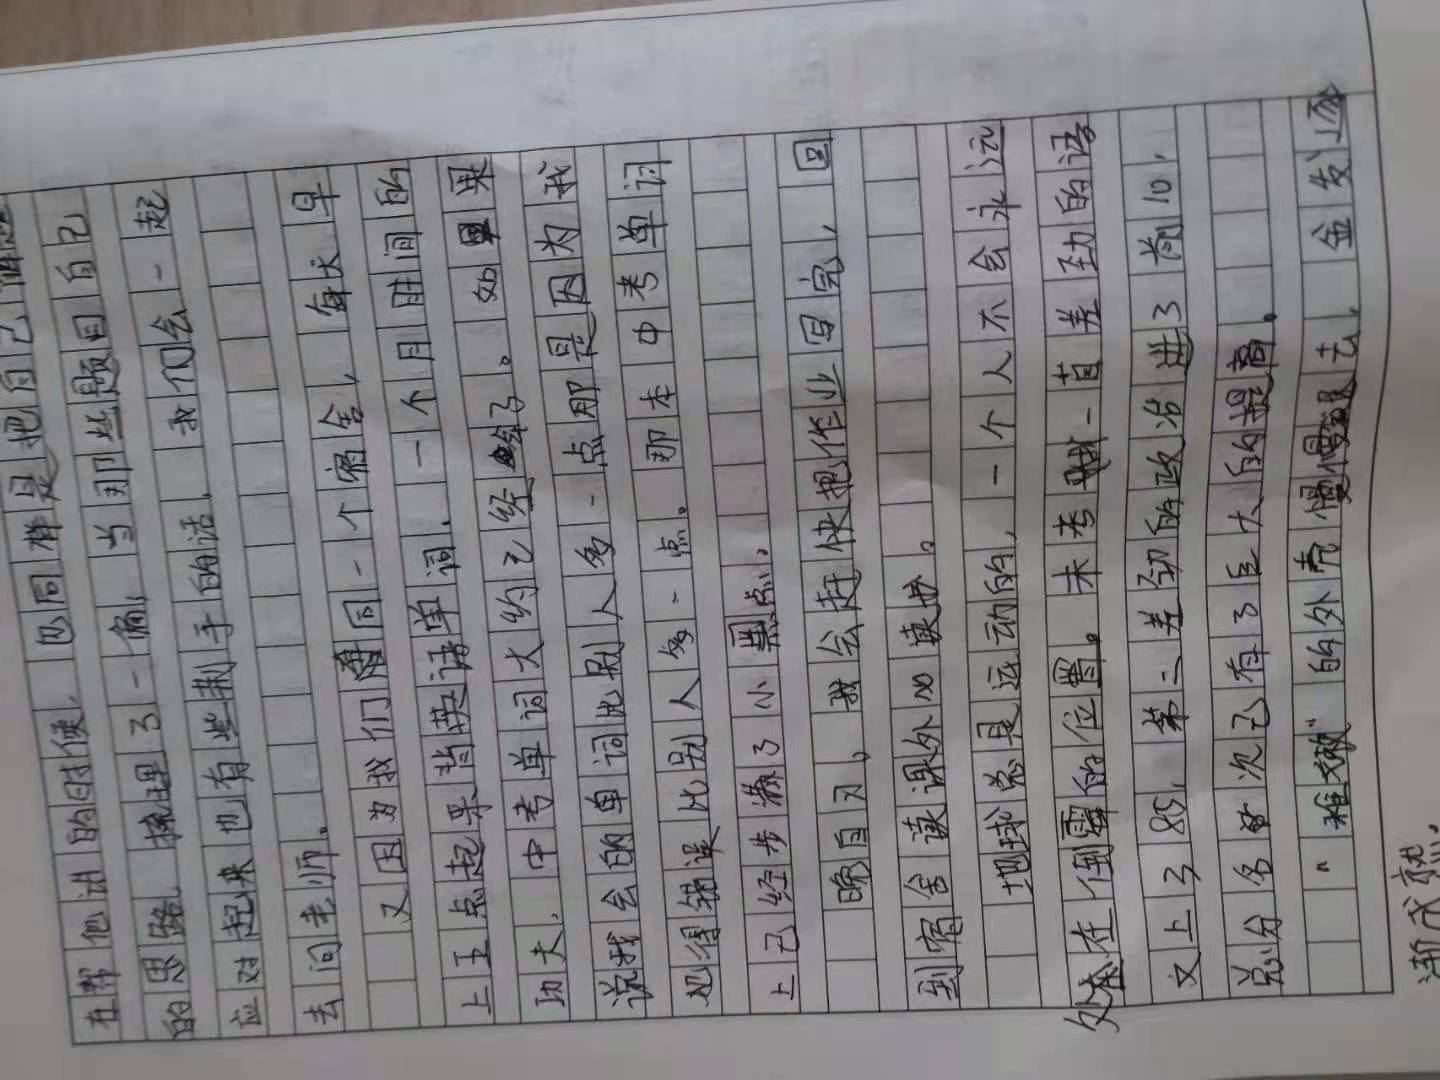 在帮他讲的时便,也同样是把自己
的思路梳理了一偏,当那些题目自己
应对起来也有些荆手的话,我们会一起
去问老师。
又因为我们同一个宿舍,每天早
上五点起来背英语单词,一个月时间的
功夫,中考单词大约已经了。如果
说我会的单词比别人多一点那是因为我
犯得错误比别人多一点。那本中考单词
上已经步满了小黑点,
晚自习,我会赶快把作业写完,回
到宿舍读课外读物。
地球总是运动的,一个人不会永远
处在倒霉的位置。末考一直差劲的语
文上了85,第二差劲的政治进了前10,
总分名次已有了巨大的提高。
"稚嫩"的外壳慢慢退去,金发逐
渐成熟.